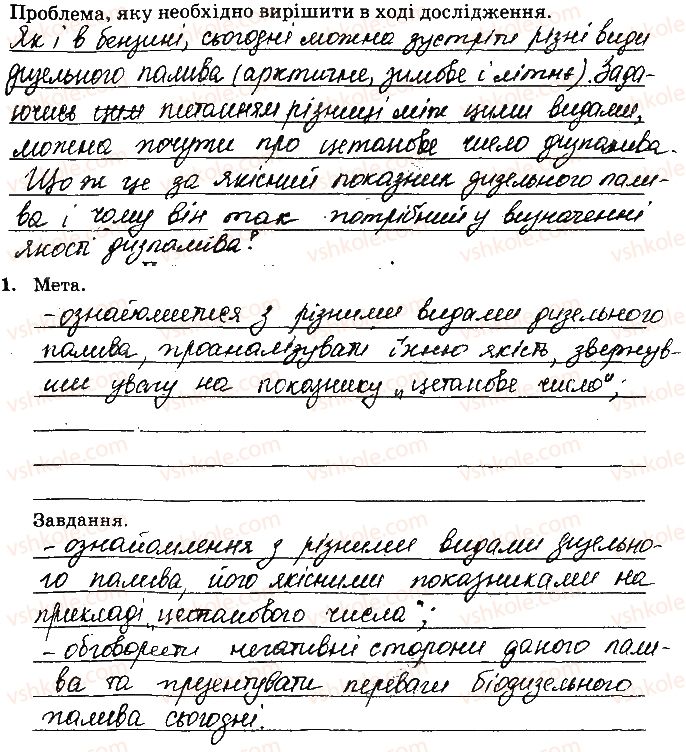 Проблема, яку необхідно вирішити в ході дослідження.
Як і в бензині, сьогодні можна зустріти різні види
дизельного палива (арктичне, зимове і літнє). Зада-
ючись питанням різниці між цими видами,
можна почути про цетанове число дизпалива.
Що ж це за якісний показник дизельного пали-
ва і чому він так потрібний у визначенні
якості дизпалива?
1. Мета.
- ознайомитися з різними видами дизельного
палива, проаналізувати їхню якість, звернув-
ши увагу на показнику „цетанове число";
Завдання.
- ознайомлення з різними видами дизельно-
го палива, його якісними показниками на
прикладі „цетанового числа";
- обговорити негативні сторони даного пали-
ва та презентувати переваги біодизельного
палива сьогодні.